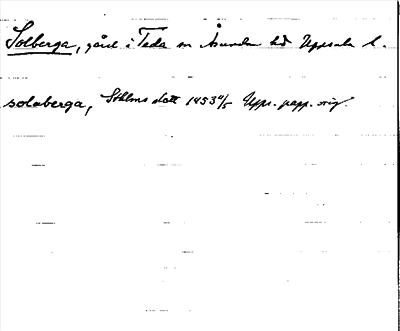 Solberga, gård i Teda sn Åsunda hd Uppsala l.
solaberga, Sthlms slott 1453 11/5 Upps. papp. orig.